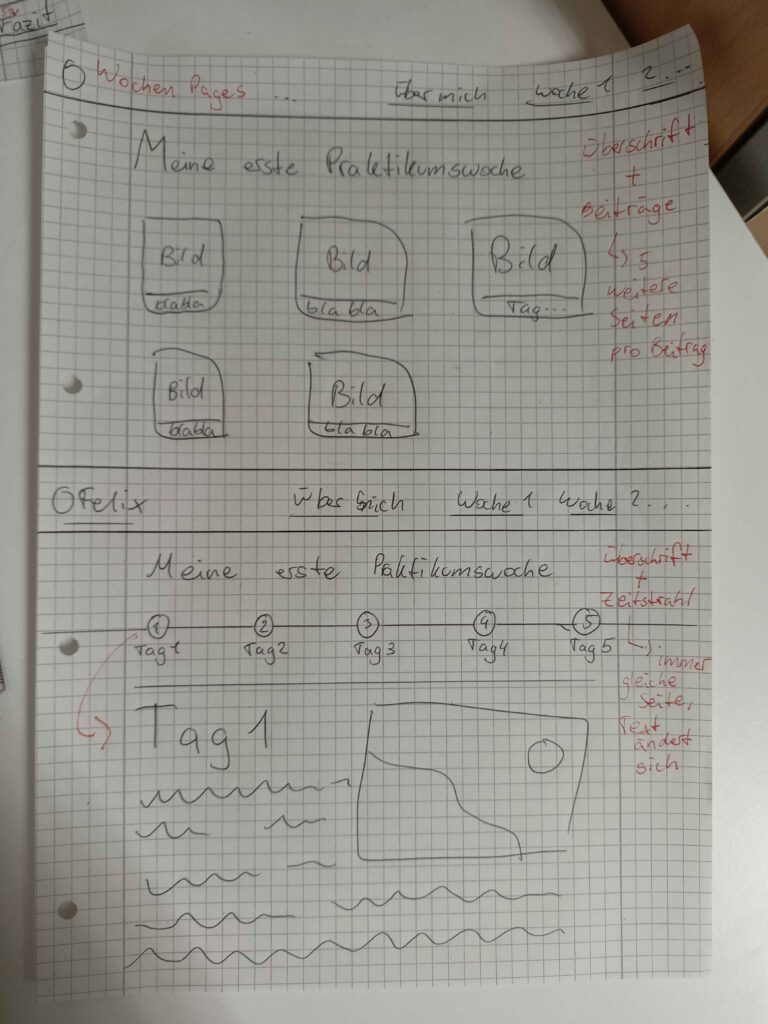 Fazit
Wochen Pages ...
Über mich Woche 1 2...
Meine erste Praktikumswoche
Überschrift
+
Beiträge
↳ 5
weitere
Seiten
pro Beitrag
Bild
blabla
Bild
bla bla
Bild
Tag...
Bild
blabla
Bild
bla bla
Felix
Über mich Woche 1 Woche 2...
Meine erste Praktikumswoche
Überschrift
+
Zeitstrahl
↳ immer
gleiche
Seite,
Text
ändert
sich
1 2 3 4 5
Tag 1 Tag 2 Tag 3 Tag 4 Tag 5
Tag 1